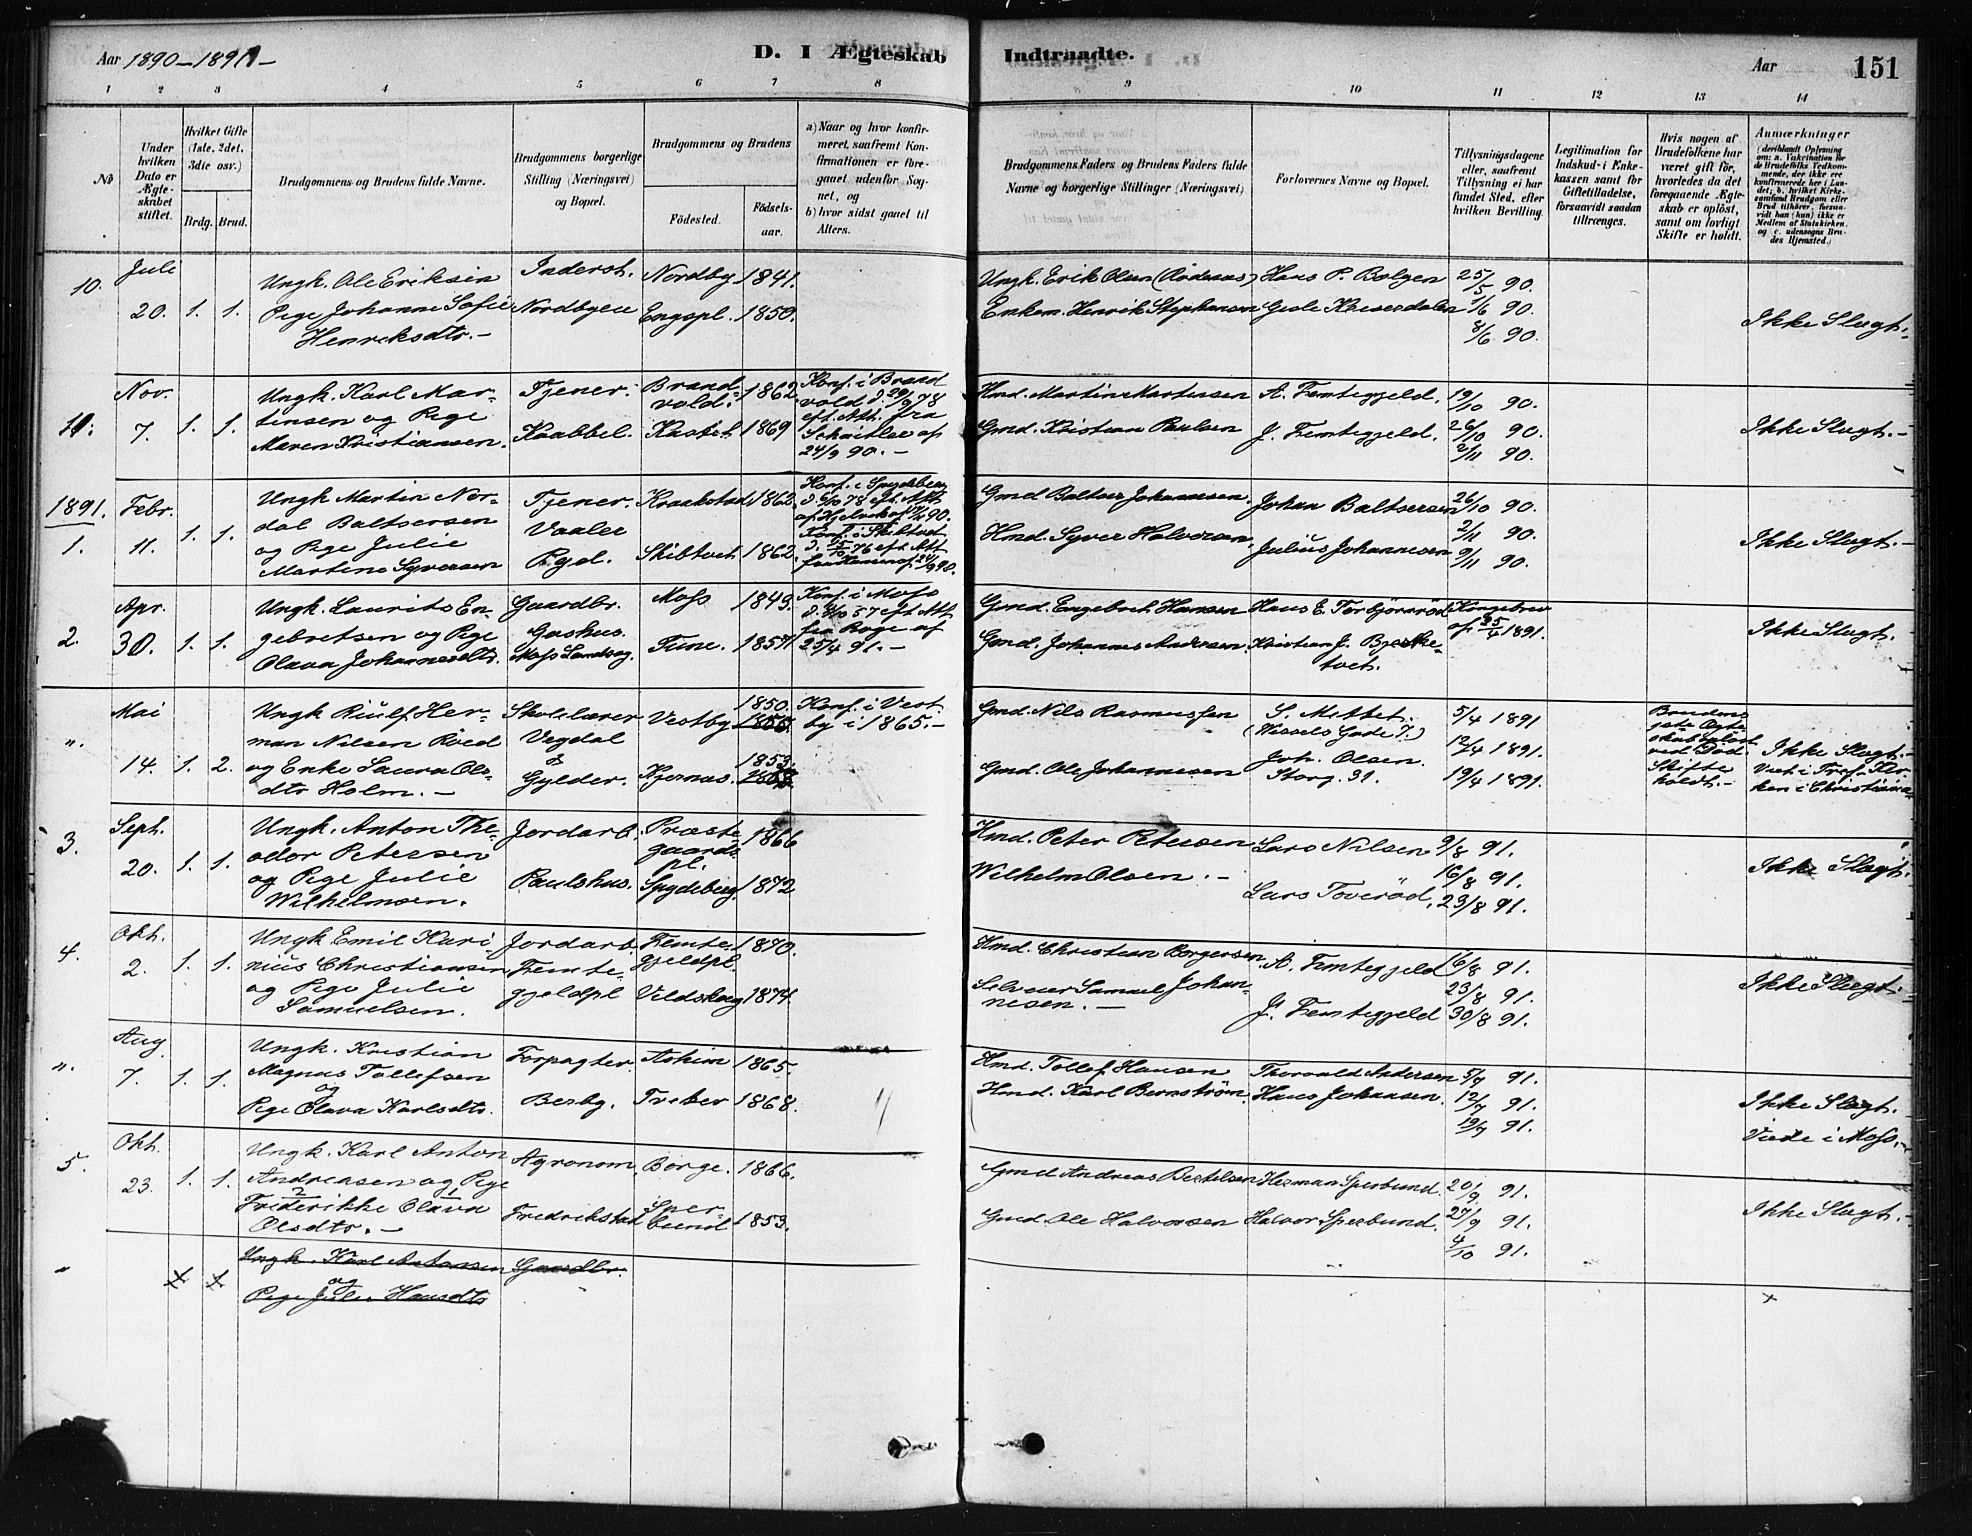 Aar 1890-1891-
D. I Ægteskab Indtraadte.
Aar
151
1 2 3 4 5 6 7 8 9 10 11 12 13 14
No
Under hvilken Dato er Ægteskabet stiftet.
Hvilket Gifte (1ste, 2det, 3die osv.)
Brdg. Brud.
Brudgommens og Brudens fulde Navne.
Brudgommens borgerlige Stilling (Næringsvei) og Bopæl.
Brudgommens og Brudens
Fødested.
Fødsels-aar.
a) Naar og hvor konfirmeret, saafremt Konfirmationen er foregaaet udenfor Sognet, og
b) hvor sidst gaaet til Alters.
Brudgommens Faders og Brudens Faders fulde Navne og borgerlige Stillinger (Næringsvei)
Forlovernes Navne og Bopæl.
Tillysningsdagene eller, saafremt Tillysning ei har fundet Sted, efter hvilken Bevilling.
Legitimation for Indskud i Enkekassen samt for Giftetilladelse, forsaavidt saadan tiltrænges.
Hvis nogen af Brudefolkene har været gift før, hvorledes da det foregaaende Ægteskab er opløst, samt om lovligt Skifte er holdt.
Anmærkninger
10. Juli 20. 1. 1.
Ungk. Ole Eriksen
Pige Johanne Sofie
Henriksdtr. -
Inderst.
Nordbyeie
Nordby 1841.
Engspl. 1850.
Ungk. Erik Olsen (Rødsaas)
Enkem. Henrik Stephansen
Hans P. Bolgen
25/5 90.
1/6 90.
8/6 90.
Ikke Slægt.-
11. Nov. 7. 1. 1.
Ungk. Karl Mar-
tinsen og Pige
Maren Kristiansen.
Tjener.
Kaabbel.
Brand-
vold. 1862.
Kastet 1869
Konf. i Brand
vold d. 29/9 78
eft. Att. fra
24/9 90. -
Hmd. Martin Martinsen
Gmd. Kristian Paulsen
A. Femtegjeld.
J. Femtegjeld.
19/10 90.
26/10 90.
2/11 90.
Ikke Slægt.-
1891.
1. Febr. 11. 1. 1.
Ungk Martin Nor-
dal Baltsersen
og Pige Julie
Martine Syversen
Tjener.
Vaaler
Pgd.
Kraakstad 1862.
Skibtvet 1862.
Konf. i Spydeberg
Gmd Baltser Johannesen.
Hmd. Syver Halvorsen.
Johan Baltsersen
Julius Johannesen
26/10 90.
2/11 90.
9/11 90.
Ikke Slægt.-
2. Apr. 30. 1. 1.
Ungk. Laurits En-
gebretsen og Pige
Olava Johannesdtr.
Gaardbr.
Gashus.
Moss Landsog.
Moss 1849.
Tune. 1857
Konf. i Moss
25/4 91. -
Gmd. Engebret Hansen
Gmd. Johannes Andersen.
Hans E. Torbjørnrød
Kristian J. Bjerke-
tvet.
Kongebrev
af 25/4 1891.
Ikke Slægt.
". Mai 14. 1. 2.
Ungk Riulf Her-
man Nilsen Roed
og Enke Laura Ols-
dtr Holm. -
Skolelærer
Vegdal
&
Gylder.
Vestby 1850.
Kjernes. 1853.
Konf. i Vest
by i 1865. -
Gmd. Nils Rasmussen
Gmd. Ole Johannesen
S. Mettet.
(Wessels Gade 7.)
Joh. Olsen.
Storg. 31.
5/4 1891
12/4 1891.
19/4 1891.
Brudens
Ægte-
skab opløst
ved Død.
Skifte
holdt. -
Ikke Slægt.-
Viet i Tref. Kir-
ken i Christiania
3. Sept. 20. 1. 1.
Ungk. Anton The-
odor Petersen
og Pige Julie
Wilhelmsen.
Jordarb.
Paulshus.
Præste
gaards
pl. 1866
Spydeberg 1872
Hmd. Peter Petersen
Wilhelm Olsen. -
Lars Nilsen
Lars Toverød.
9/8 91.
16/8 91.
23/8 91.
Ikke Slægt.
4. Okt. 2. 1. 1.
Ungk Emil Kari-
nius Christiansen
og Pige Julie
Samuelsen.
Jordarb.
Femte-
gjeldpl
Femte-
gjeldpl. 1870.
Veldskog 1874.
Hmd. Christian Borgersen
Selveier Samuel Johan-
nesen. -
A. Femtegjeld
J. Femtegjeld
16/8 91.
23/8 91.
30/8 91.
Ikke Slægt.
". Aug. 7. 1. 1.
Ungk. Kristian
Magnus Tollefsen
og
Pige Olava Karlsdtr.
Forpagter.
Berby.
Askim 1865.
Tveter 1868.
Hmd. Tollef Hansen
Hmd. Karl Bernstrøm.
Thorvald Andersen
Hans Johansen.
5/7 91.
12/7 91.
19/7 91.
Ikke Slægt.
Viede i Moss.
5. Okt. 23. 1. 1.
Ungk. Karl Anton
Andreasen og Pige
Frederikke Olava
Olsdtr. -
Agronom.
Fredrikstad
Borge. 1866.
Sper-
bund 1853.
Gmd Andreas Bertelsen
Gmd. Ole Halvorsen
Herman Sperbund.
Halvor Sperbund.
20/9 91.
27/9 91.
4/10 91.
Ikke Slægt.-
" x x
Ungk. Karl Antonsen Gaardbr.
og
Pige Julie Hansdtr
x